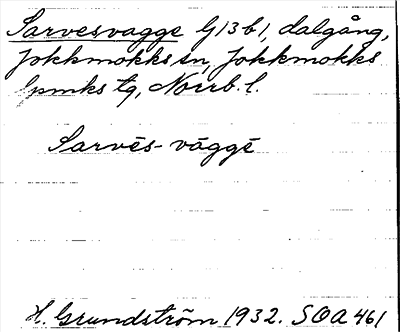 Sarvesvagge G13b1, dalgång,
Jokkmokks sn, Jokkmokks
lpmks tg, Norrb. l.
Sarvēs-vāggē
H. Grundström 1932. SOA 461